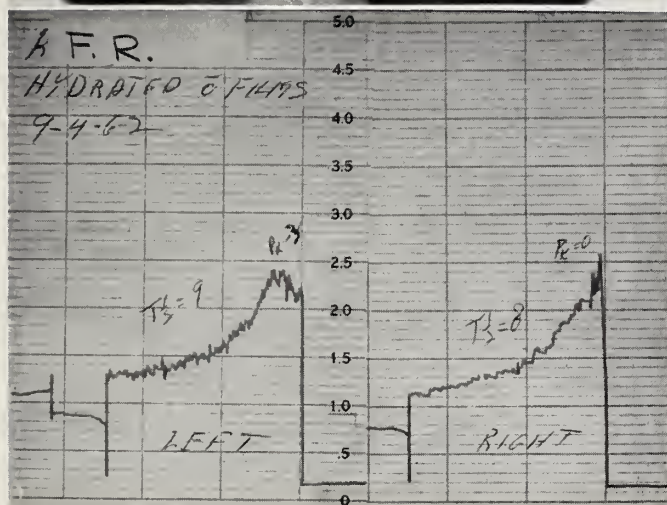 K F.R.
HYDRATED c̄ FILMS
9-4-62
5.0
4.5
4.0
3.5
3.0
2.5
2.0
1.5
1.0
.5
0
LEFT
Pk=0
RIGHT